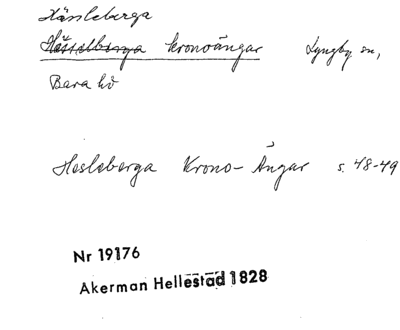 Hässleberga
Hässelberga kronoängar Lyngby sn,
Bara hd
Hesleberga Krono-Ängar s. 48-49
Nr 19176
Akerman Hellestad 1828